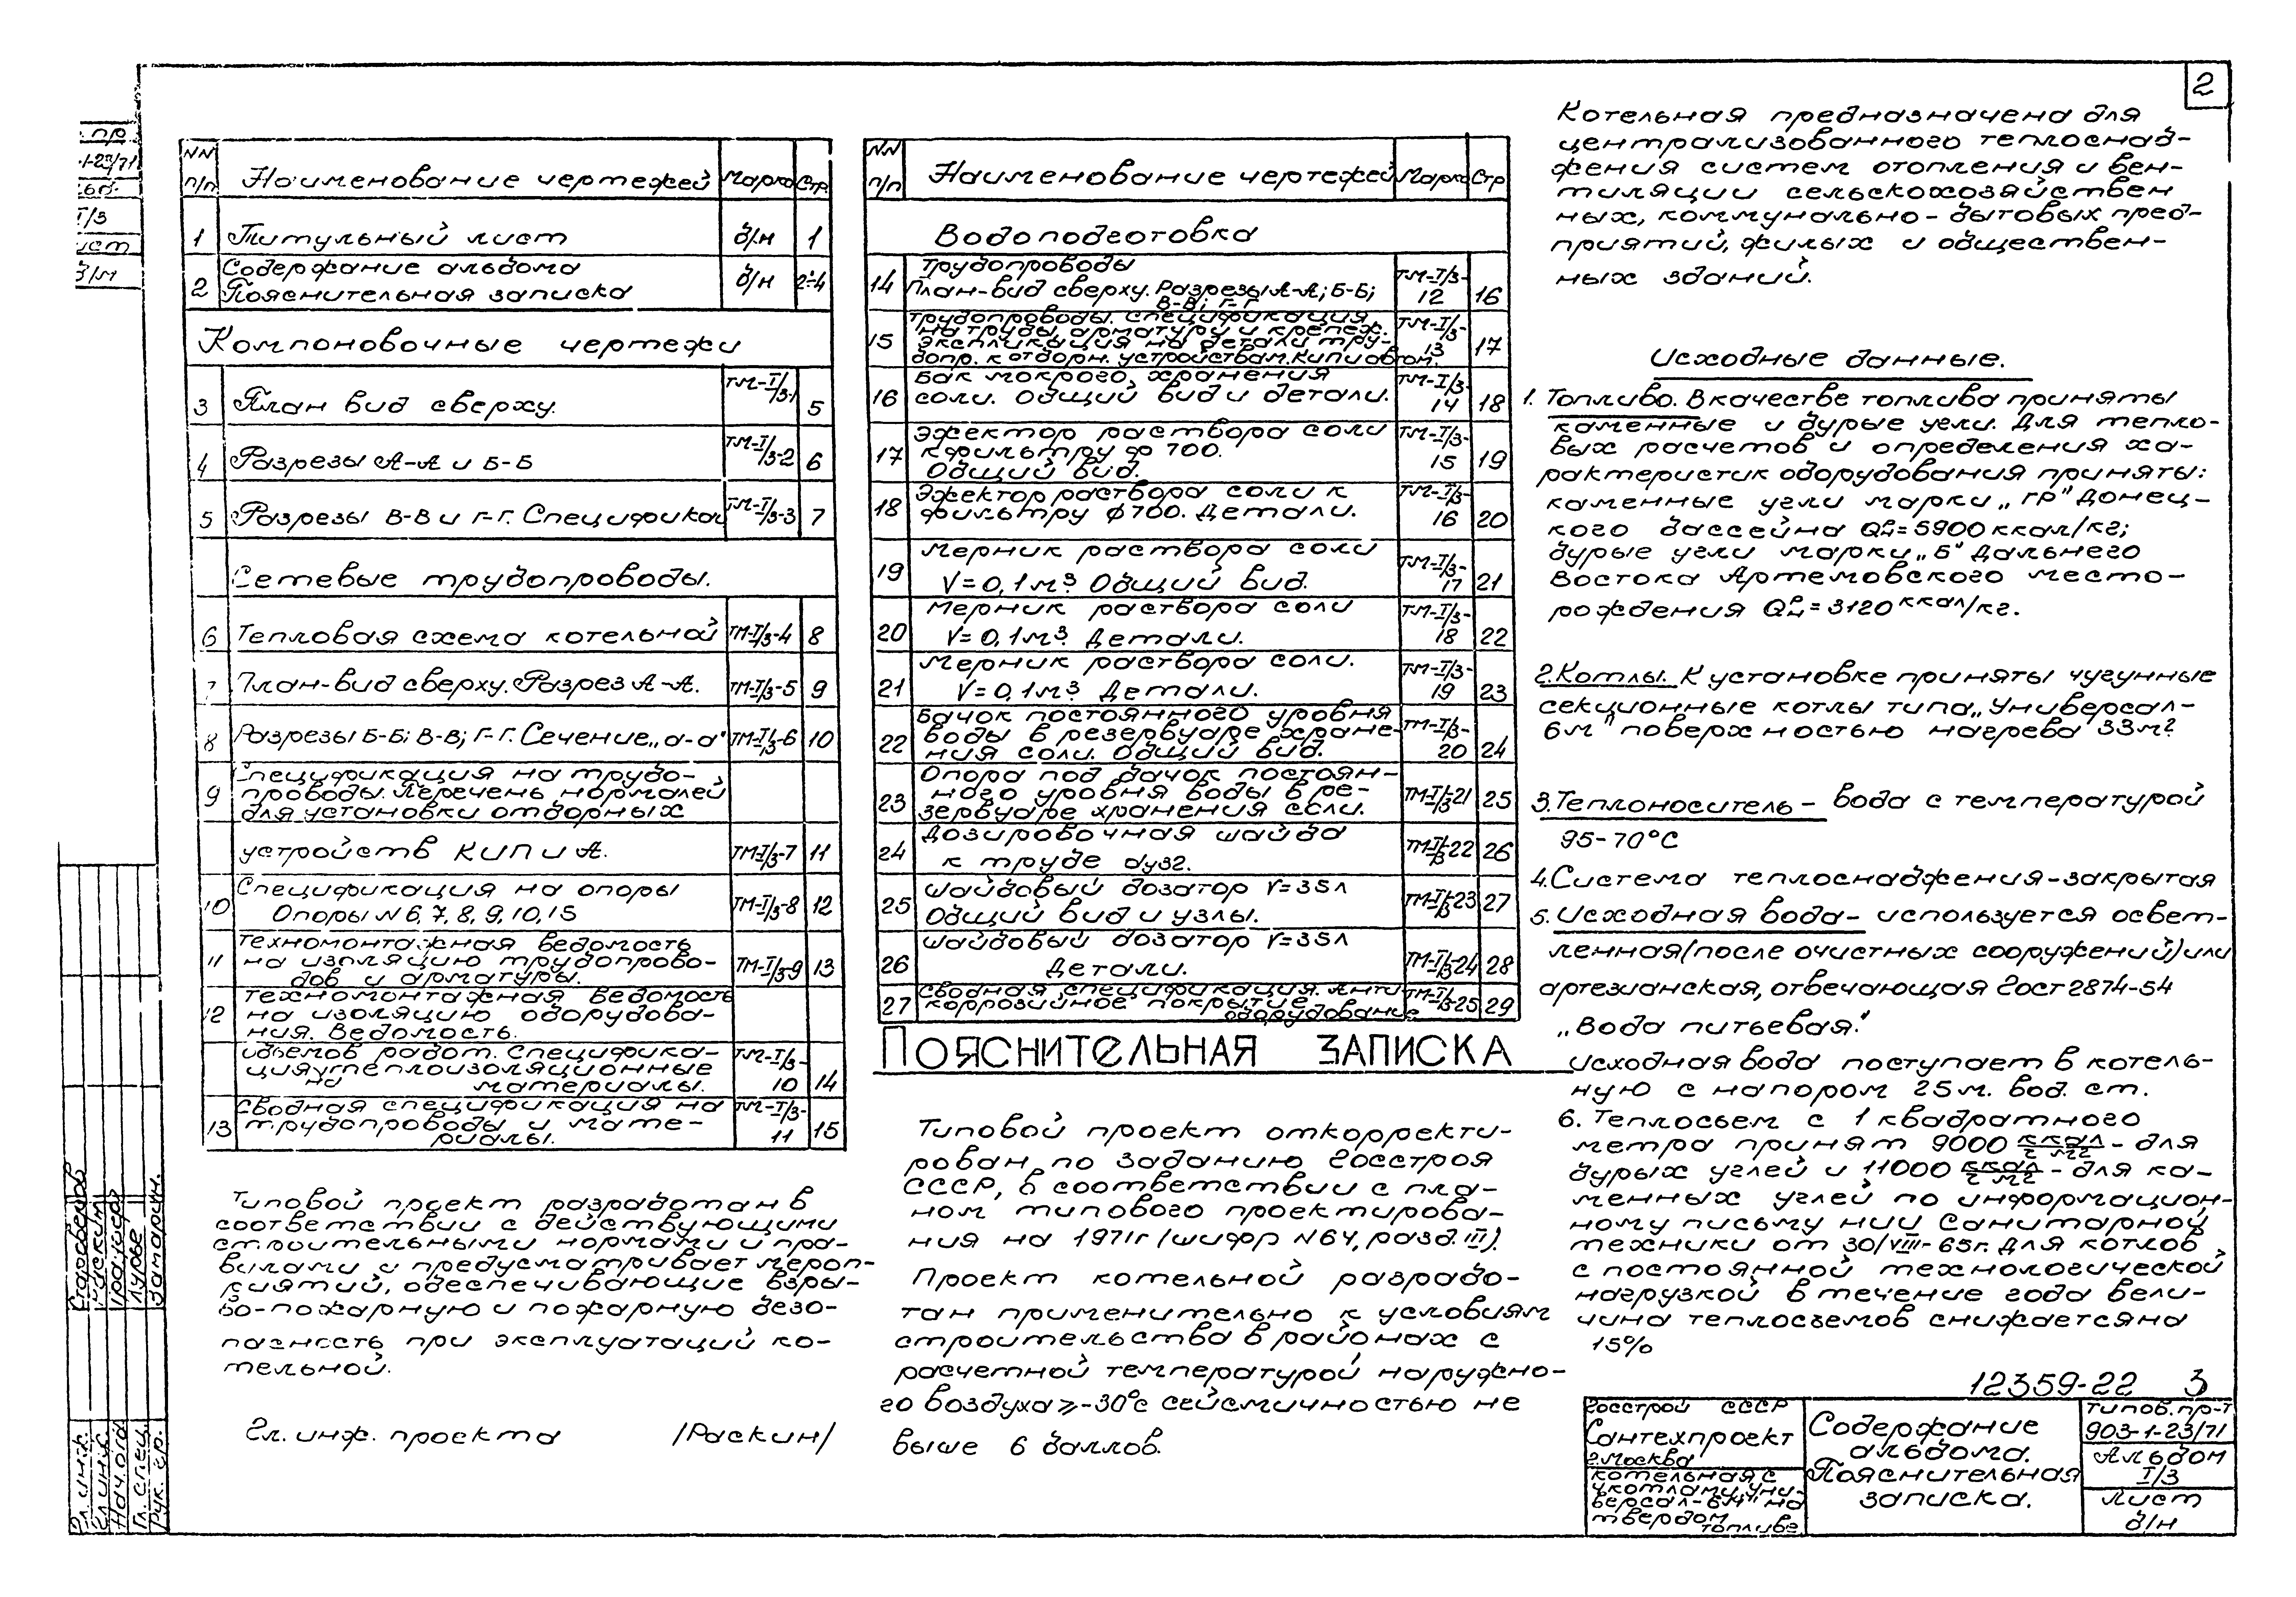 2
пр
-1-23/71
I/3
б/н
NN п/п Наименование чертежей Марка Стр.
1 Титульный лист б/н 1
2 Содержание альбома
Пояснительная записка б/н 2÷4
Компоновочные чертежи
3 План вид сверху. ТМ-I/3-1 5
4 Разрезы А-А и Б-Б ТМ-I/3-2 6
5 Разрезы В-В и Г-Г. ТМ-I/3-3 7
Сетевые трубопроводы.
6 Тепловая схема котельной ТМ-I/3-4 8
7 План-вид сверху. Разрез А-А. ТМ-I/3-5 9
8 Разрезы Б-Б; В-В; Г-Г. Сечение „а-а" ТМ-I/3-6 10
9 Спецификация на трубо-
проводы. Перечень нормалей
для установки отборных
устройств КИП и А. ТМ-I/3-7 11
10 Спецификация на опоры
Опоры N 6, 7, 8, 9, 10, 15 ТМ-I/3-8 12
11 Техномонтажная ведомость
на изоляцию трубопрово-
дов и арматуры. ТМ-I/3-9 13
12 Техномонтажная ведомость
на изоляцию оборудова-
ния. Ведомость.
объемов работ. Специфика-
ция теплоизоляционные
на материалы. ТМ-I/3-10 14
13 Сводная спецификация на
трубопроводы и мате-
риалы. ТМ-I/3-11 15
Типовой проект разработан в
соответствии с действующими
строительными нормами и пра-
вилами и предусматривает мероп-
риятий, обеспечивающие взры-
во-пожарную и пожарную безо-
пасность при эксплуатаций ко-
тельной.
Гл. инж. проекта /Раскин/
NN п/п Наименование чертежей Марка Стр
Водоподготовка
14 Трубопроводы
План-вид сверху. Разрезы А-А; Б-Б;
В-В; Г-Г ТМ-I/3-12 16
15 Трубопроводы. Спецификация
на трубы, арматуру и крепеж.
Экспликация на детали тру-
бопр. к отборн. устройствам. КИП и автом. ТМ-I/3-13 17
16 Бак мокрого хранения
соли. Общий вид и детали. ТМ-I/3-14 18
17 Эжектор раствора соли
к фильтру ф 700.
Общий вид. ТМ-I/3-15 19
18 Эжектор раствора соли к
фильтру ф 700. Детали. ТМ-I/3-16 20
19 Мерник раствора соли
V=0,1м³. Общий вид. ТМ-I/3-17 21
20 Мерник раствора соли
V=0,1м³. Детали. ТМ-I/3-18 22
21 Мерник раствора соли.
V=0,1м³. Детали. ТМ-I/3-19 23
22 Бачок постоянного уровня
воды в резервуаре хране-
ния соли. Общий вид. ТМ-I/3-20 24
23 Опора под бачок постоян-
ного уровня воды в ре-
зервуаре хранения соли. ТМ-I/3-21 25
24 Дозировочная шайба
к трубе dу32. ТМ-I/3-22 26
25 Шайбовый дозатор V=35л
Общий вид и узлы. ТМ-I/3-23 27
26 Шайбовый дозатор V=35л
Детали. ТМ-I/3-24 28
27 Сводная спецификация. Анти-
коррозийное покрытие
оборудование ТМ-I/3-25 29
ПОЯСНИТЕЛЬНАЯ ЗАПИСКА
Типовой проект откорректи-
рован по заданию Госстроя
СССР, в соответствии с пла-
ном типового проектирова-
ния на 1971г (шифр N64, разд. III).
Проект котельной разрабо-
тан применительно к условиям
строительства в районах с
расчетной температурой наружно-
го воздуха ≥-30°с сейсмичностью не
выше 6 баллов.
Котельная предназначена для
централизованного теплоснаб-
жения систем отопления и вен-
тиляции сельскохозяйствен
ных, коммунально-бытовых пред-
приятий, жилых и обществен-
ных зданий.
Исходные данные.
1. Топливо. В качестве топлива приняты
каменные и бурые угли. Для тепло-
вых расчетов и определения ха-
рактеристик оборудования приняты:
каменные угли марки „ГР" Донец-
кого бассейна Qрн=5900 ккал/кг;
бурые угли марки „Б" Дальнего
Востока Артемовского место-
рождения Qрн=3120 ккал/кг.
2. Котлы. К установке приняты чугунные
секционные котлы типа „Универсал-
6м" поверхностью нагрева 33м².
3. Теплоноситель - вода с температурой
95-70°С
4. Система теплоснабжения-закрытая
5. Исходная вода- используется освет-
ленная (после очистных сооружений) или
артезианская, отвечающая Гост 2874-54
„Вода питьевая".
Исходная вода поступает в котель-
ную с напором 25м. вод. ст.
6. Теплосьем с 1 квадратного
метра принят 9000 ккал/м²г - для
бурых углей и 11000 ккал/м²г - для ка-
менных углей по информацион-
ному письму НИИ Санитарной
техники от 30/VIII-65г. Для котлов
с постоянной технологической
нагрузкой в течение года вели-
чина теплосъемов снижается на
15%
12359-22 3
Госстрой СССР
Сантехпроект
г. Москва
Котельная с
4 котлами „Уни-
версал-6М" на
твердом
топливе
Содержание
альбома.
Пояснительная
записка.
Типов. пр-т
903-1-23/71
Альбом
I/3
Лист
б/н
Гл. инж.
Гл. инж. Раскин
Нач. отд
Гл. спец. Лурье
Рук. гр.